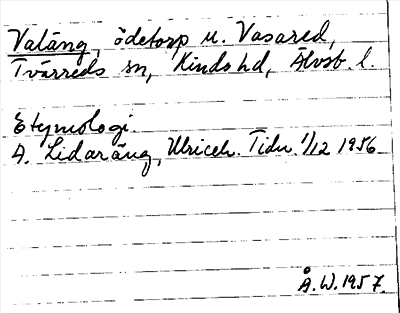 Valäng, ödetorp u. Vasared,
Tvärreds sn, Kinds hd, Älvsb. l.
Etymologi.
A. Lidaräng, Ulriceh. Tidn. 1/12 1956.
Å.W. 1957.